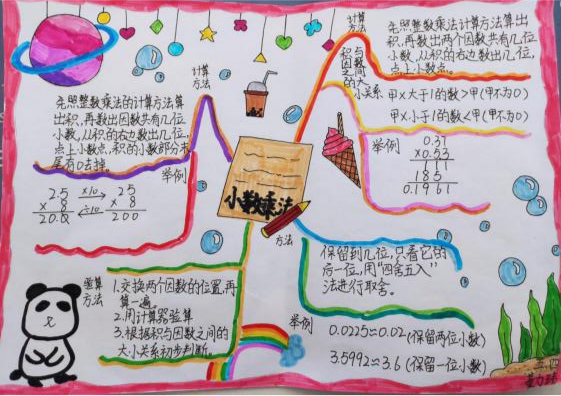 小数乘法
计算
方法
先照整数乘法的计算方法算
出积,再数出因数共有几位
小数,从积的右边数出几位,
点上小数点,积的小数部分末
尾有0去掉。
举例
2.5 ×10→ 25
× 8 × 8
20.0 ←÷10 200
计算
方法
先照整数乘法计算方法算出
积,再数出两个因数共有几位
小数,从积的右边数出几位,
点上小数点。
积与
因数
之间
的大
小关系
甲×大于1的数>甲(甲不为0)
甲×小于1的数<甲(甲不为0)
举例
0.37
×0.53
111
185
0.1961
验算
方法
1.交换两个因数的位置,再
算一遍。
2.用计算器验算
3.根据积与因数之间的
大小关系初步判断。
方法
保留到几位,只看它的
后一位,用“四舍五入”
法进行取舍。
举例
0.0225≈0.02(保留两位小数)
3.5992≈3.6(保留一位小数)